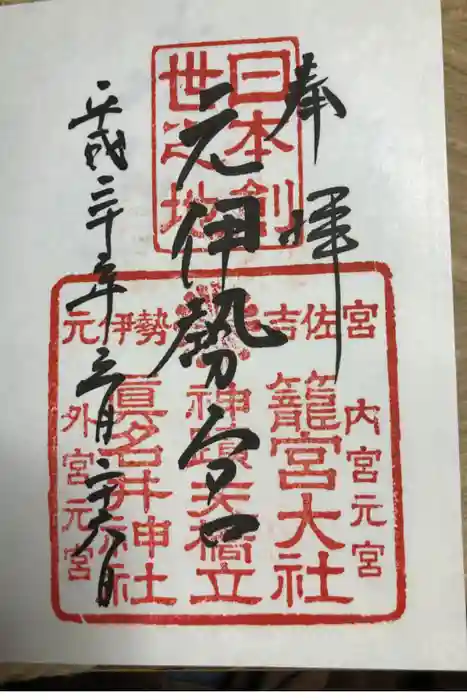 奉拝
日本創
世之地
元伊勢宮
平成三十年三月二十六日
元伊勢吉佐宮
内宮元宮
籠宮大社
神蹟天橋立
眞名井神社
外宮元宮